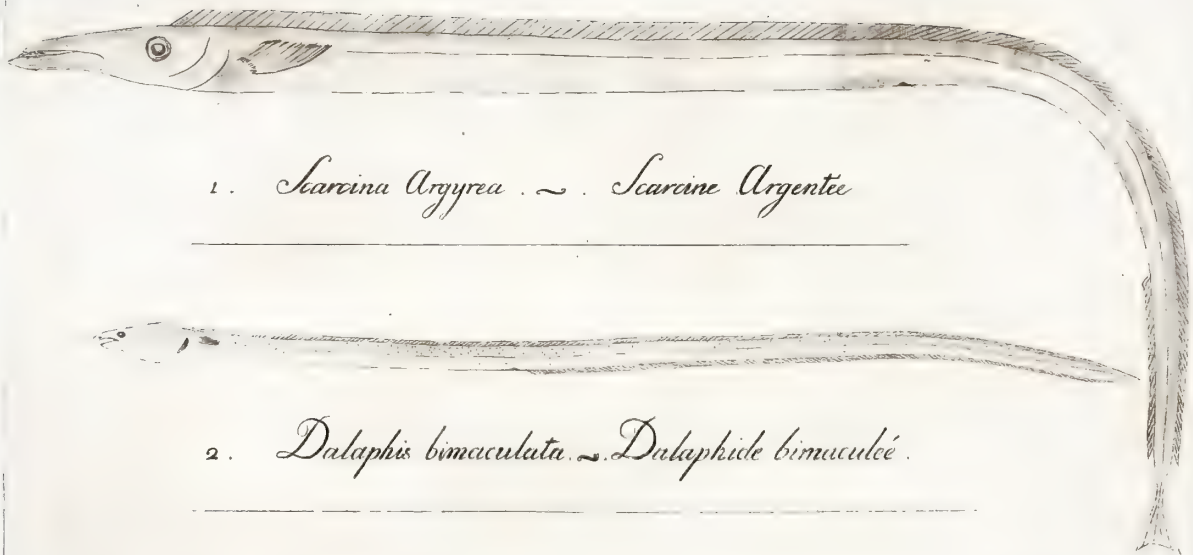 1. Scarcina Argyrea. ~. Scarcine Argentée
2. Dalaphis bimaculata. ~. Dalaphide bimaculéé.